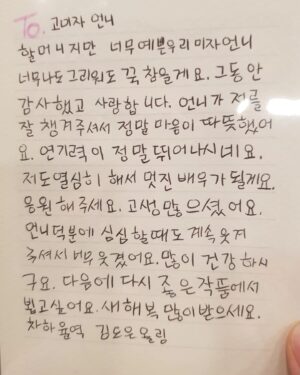 To. 고미자 언니
할머니지만 너무예쁜우리미자언니
너무나도 그리워도 꾹 참을게요. 그동안
감사했고 사랑합니다. 언니가 저를
잘 챙겨주셔서 정말 마음이 따뜻했어
요. 연기력이 정말 뛰어나시네요.
저도열심히 해서 멋진 배우가 될게요.
응원해주세요. 고생많으셨어요.
언니덕분에 심심할때도 계속 웃겨
주셔서 너무 웃겼어요. 많이 건강하시
구요. 다음에 다시 좋은작품에서
뵙고싶어요. 새해복 많이받으세요.
차하윤역 김도은 올림